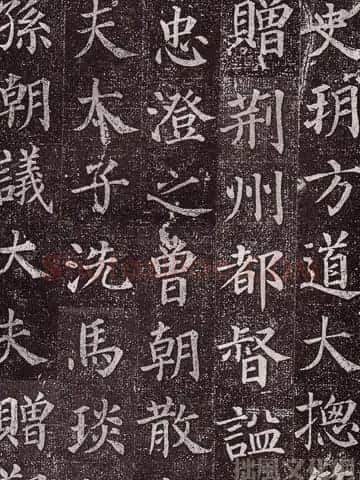 史朔方道大揔
贈荆州都督謚
忠澄之曾朝散
夫太子洗馬琰
孫朝議大夫贈
拙風文化网